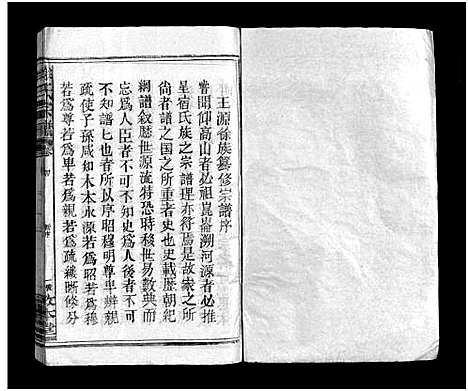 王源徐族纂修宗譜序
嘗聞仰高山者必祖崑崙溯河源者必推
星宿氏族之宗譜理亦符焉是故家之所
尚者譜之國之所重者史也史載歷朝紀
綱譜敘歷世源流特恐時移世易數典而
忘為人臣者不可不知史為人後者不可
不知譜也此也所以序昭穆明尊卑辨親
疏使子孫咸知木本水源若為昭若為穆
若為尊若為卑若為親若為疏纖晰條分